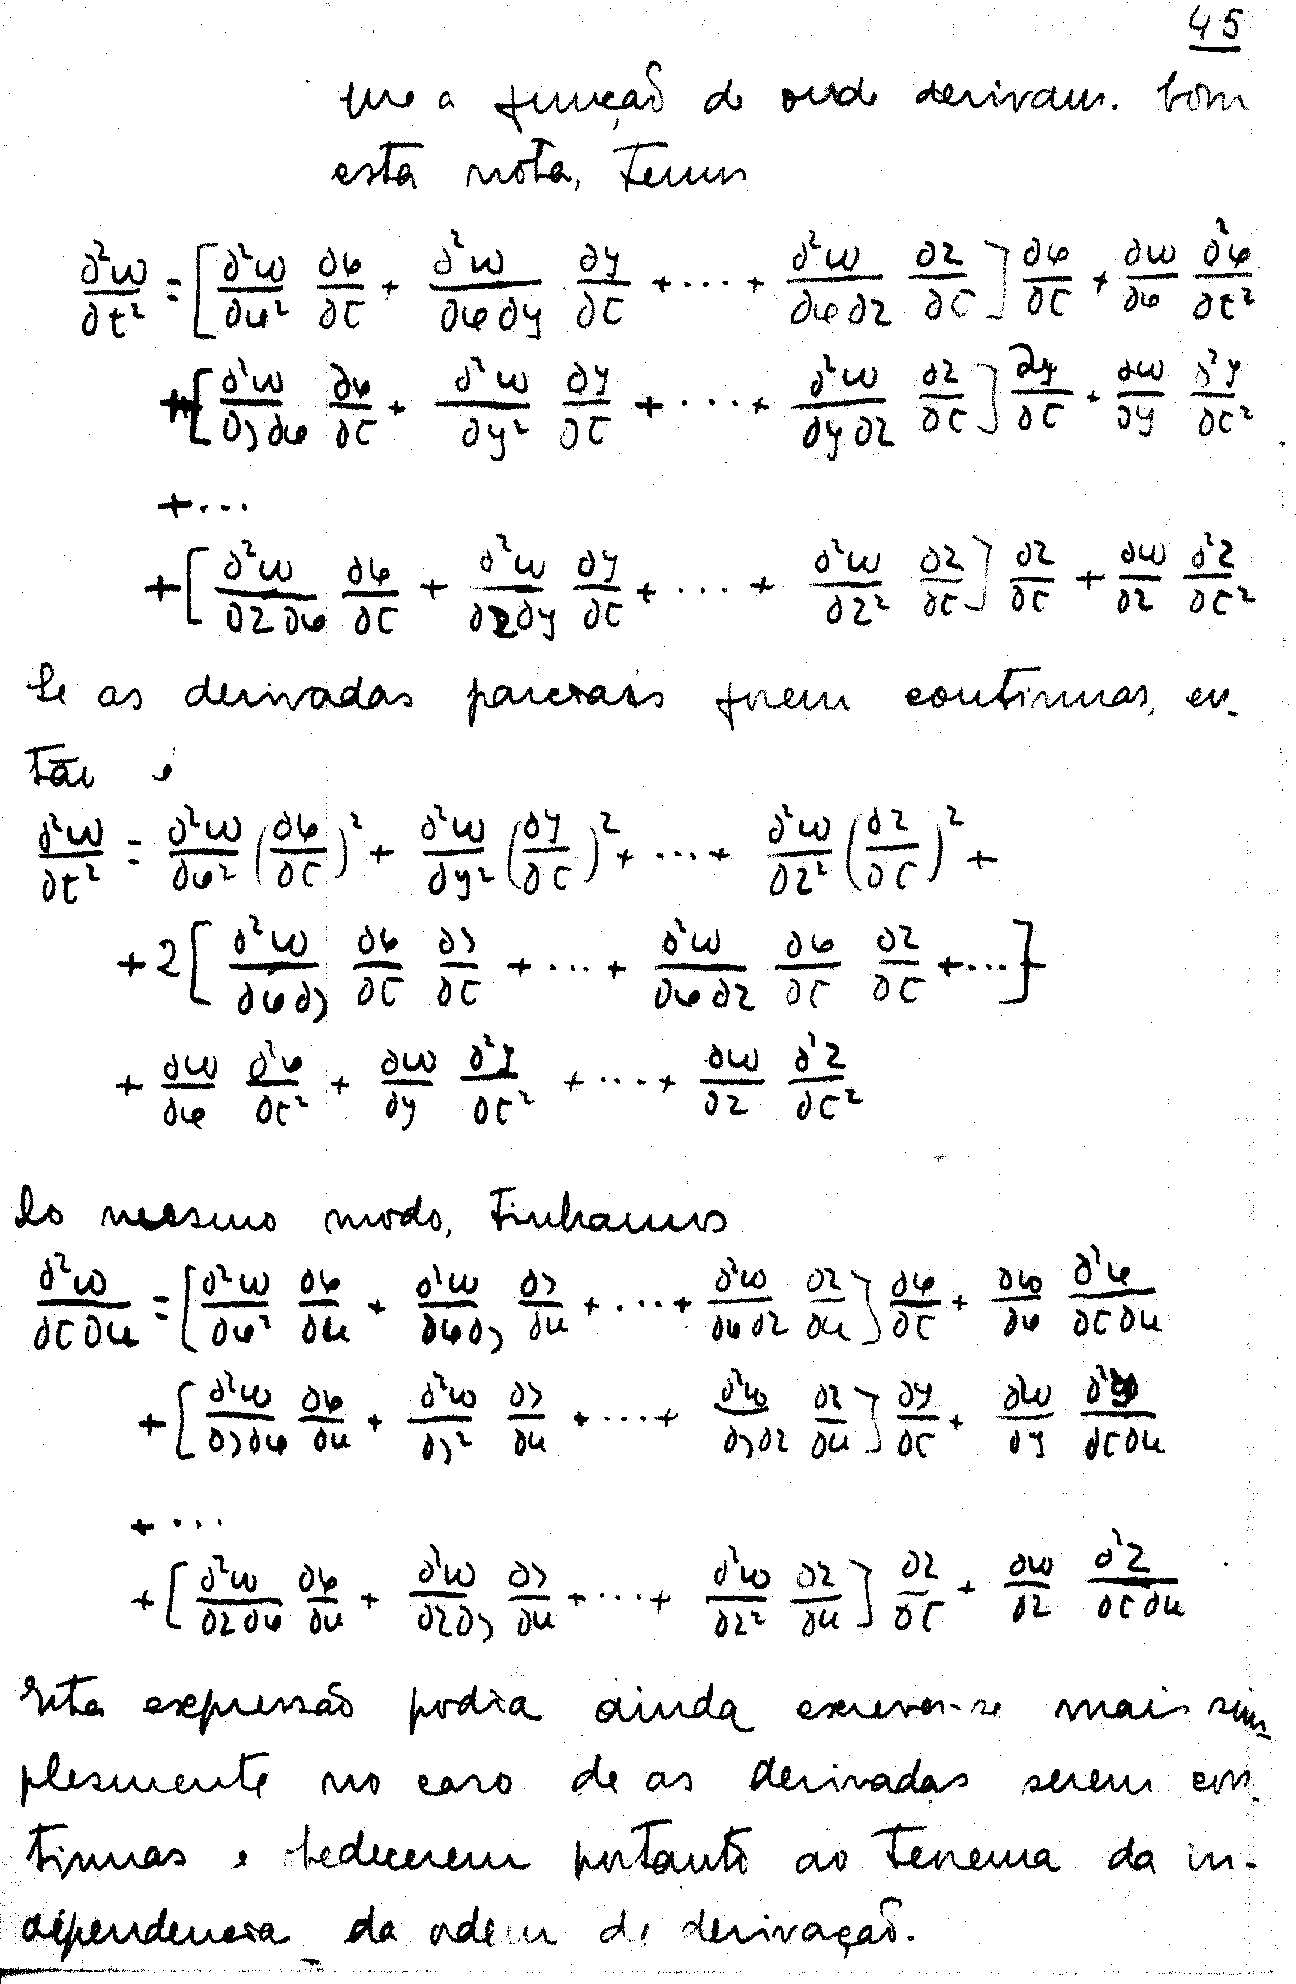 45
que a função de onde derivam. Com
esta nota, temos
∂²w/∂t² = [∂²w/∂x² ∂x/∂t + ∂²w/∂x∂y ∂y/∂t + ··· + ∂²w/∂x∂z ∂z/∂t] ∂x/∂t + ∂w/∂x ∂²x/∂t²
+ [∂²w/∂y∂x ∂x/∂t + ∂²w/∂y² ∂y/∂t + ··· + ∂²w/∂y∂z ∂z/∂t] ∂y/∂t + ∂w/∂y ∂²y/∂t²
+ ···
+ [∂²w/∂z∂x ∂x/∂t + ∂²w/∂z∂y ∂y/∂t + ··· + ∂²w/∂z² ∂z/∂t] ∂z/∂t + ∂w/∂z ∂²z/∂t²
Se as derivadas parciais forem continuas, en-
tão é
∂²w/∂t² = ∂²w/∂x² (∂x/∂t)² + ∂²w/∂y² (∂y/∂t)² + ··· + ∂²w/∂z² (∂z/∂t)² +
+ 2[∂²w/∂x∂y ∂x/∂t ∂y/∂t + ··· + ∂²w/∂x∂z ∂x/∂t ∂z/∂t + ···] +
+ ∂w/∂x ∂²x/∂t² + ∂w/∂y ∂²y/∂t² + ··· + ∂w/∂z ∂²z/∂t²
Do mesmo modo, tinhamos
∂²w/∂t∂u = [∂²w/∂x² ∂x/∂u + ∂²w/∂x∂y ∂y/∂u + ··· + ∂²w/∂x∂z ∂z/∂u] ∂x/∂t + ∂w/∂x ∂²x/∂t∂u
+ [∂²w/∂y∂x ∂x/∂u + ∂²w/∂y² ∂y/∂u + ··· + ∂²w/∂y∂z ∂z/∂u] ∂y/∂t + ∂w/∂y ∂²y/∂t∂u
+ ···
+ [∂²w/∂z∂x ∂x/∂u + ∂²w/∂z∂y ∂y/∂u + ··· + ∂²w/∂z² ∂z/∂u] ∂z/∂t + ∂w/∂z ∂²z/∂t∂u
Esta expressão podia ainda escrever-se mais sim-
plesmente no caso de as derivadas serem con-
tinuas e obedecerem portanto ao teorema da in-
dependencia da ordem de derivação.